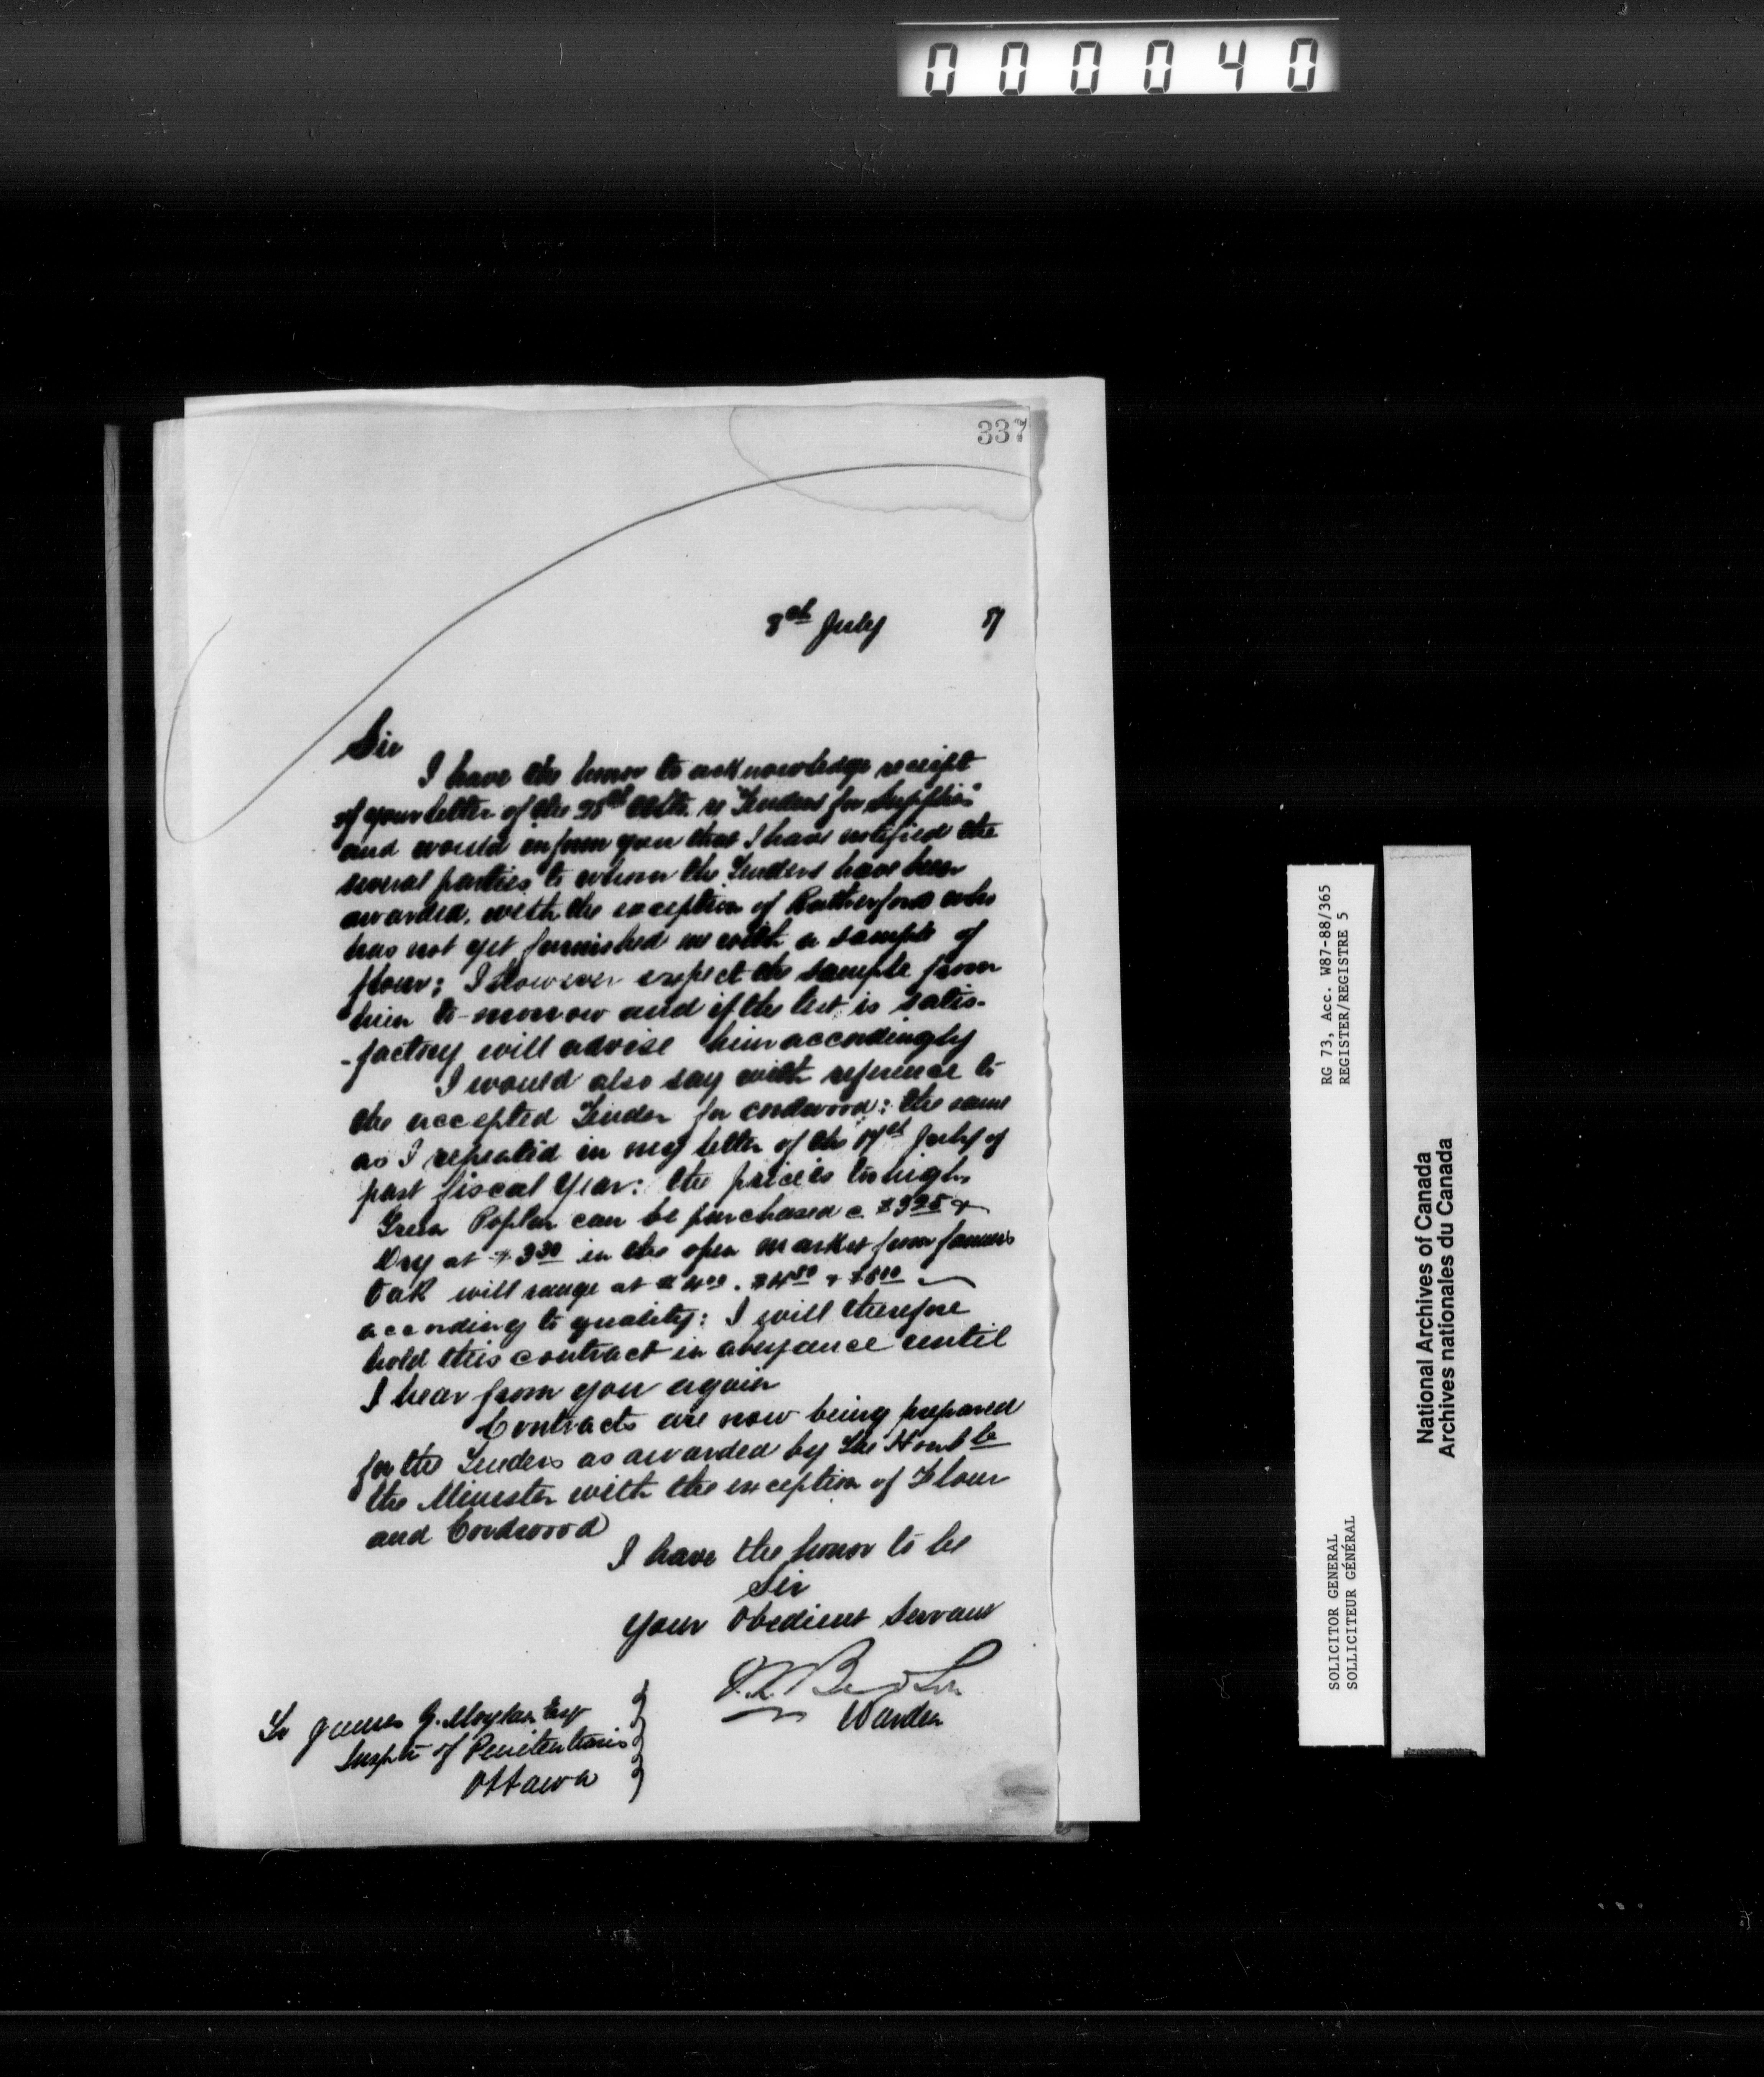 000040
337
8th July 87
Sir
I have the honor to acknowledge receipt
of your letter of the 28th Ulto. re "Tenders for Supplies"
and would inform you that I have notified the
several parties to whom the Tenders have been
awarded, with the exception of Rutherford who
has not yet furnished me with a sample of
flour; I However expect the sample from
him to-morrow and if the test is satis-
-factory will advise him accordingly
I would also say with reference to
the accepted Tender for cordwood: the same
as I repeated in my letter of the July of
past fiscal Year: the price is to high.
Green Poplar can be purchased @ $3 25 &
Dry at $3 30 in the open market from farmers
Oak will range at $4 00. $4 50 & $5 00
according to quality: I will therefore
hold this contract in abeyance until
I hear from you again
Contracts are now being prepared
for the Tenders as awarded by The Honble
the Minister with the exception of Flour
and Cordwood
I have the honor to be
Sir
Your Obedient Servant
S. L. Bedson
Warden
To James G. Moylan Esq
Inspr of Penitentiaries
Ottawa
RG 73, Acc. W87-88/365
REGISTER/REGISTRE 5
SOLICITOR GENERAL
SOLLICITEUR GÉNÉRAL
National Archives of Canada
Archives nationales du Canada